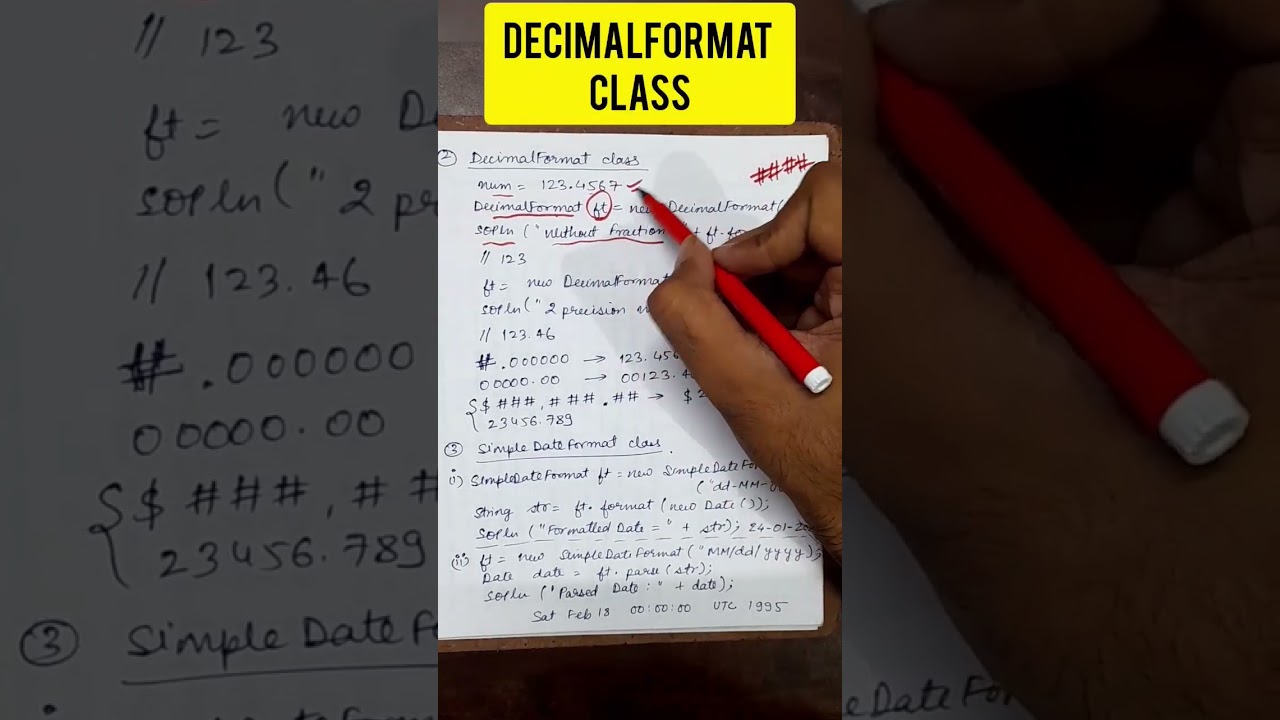 DECIMALFORMAT
CLASS
② DecimalFormat class
num = 123.4567
####
DecimalFormat ft = new DecimalFormat(
SOPln ("Without fraction " + ft.for
// 123
ft = new DecimalFormat
SOPln ("2 precision
// 123.46
#.000000 → 123.456
00000.00 → 00123.4
{$###,###.## → $2
23456.789
③ SimpleDateFormat class.
i) SimpleDateFormat ft = new SimpleDateFor
("dd-MM-
String str = ft.format (new Date ());
SOPln ("Formatted Date = " + str); 24-01-20
ii) ft = new SimpleDateFormat ("MM/dd/yyyy);
Date date = ft.parse (str);
SOPln ("Parsed Date : " + date);
Sat Feb 18 00:00:00 UTC 1995
// 123
ft = new De
SOPln (" 2 pre
// 123.46
#.000000
00000.00
{$###,##
23456.789
③ SimpleDateF